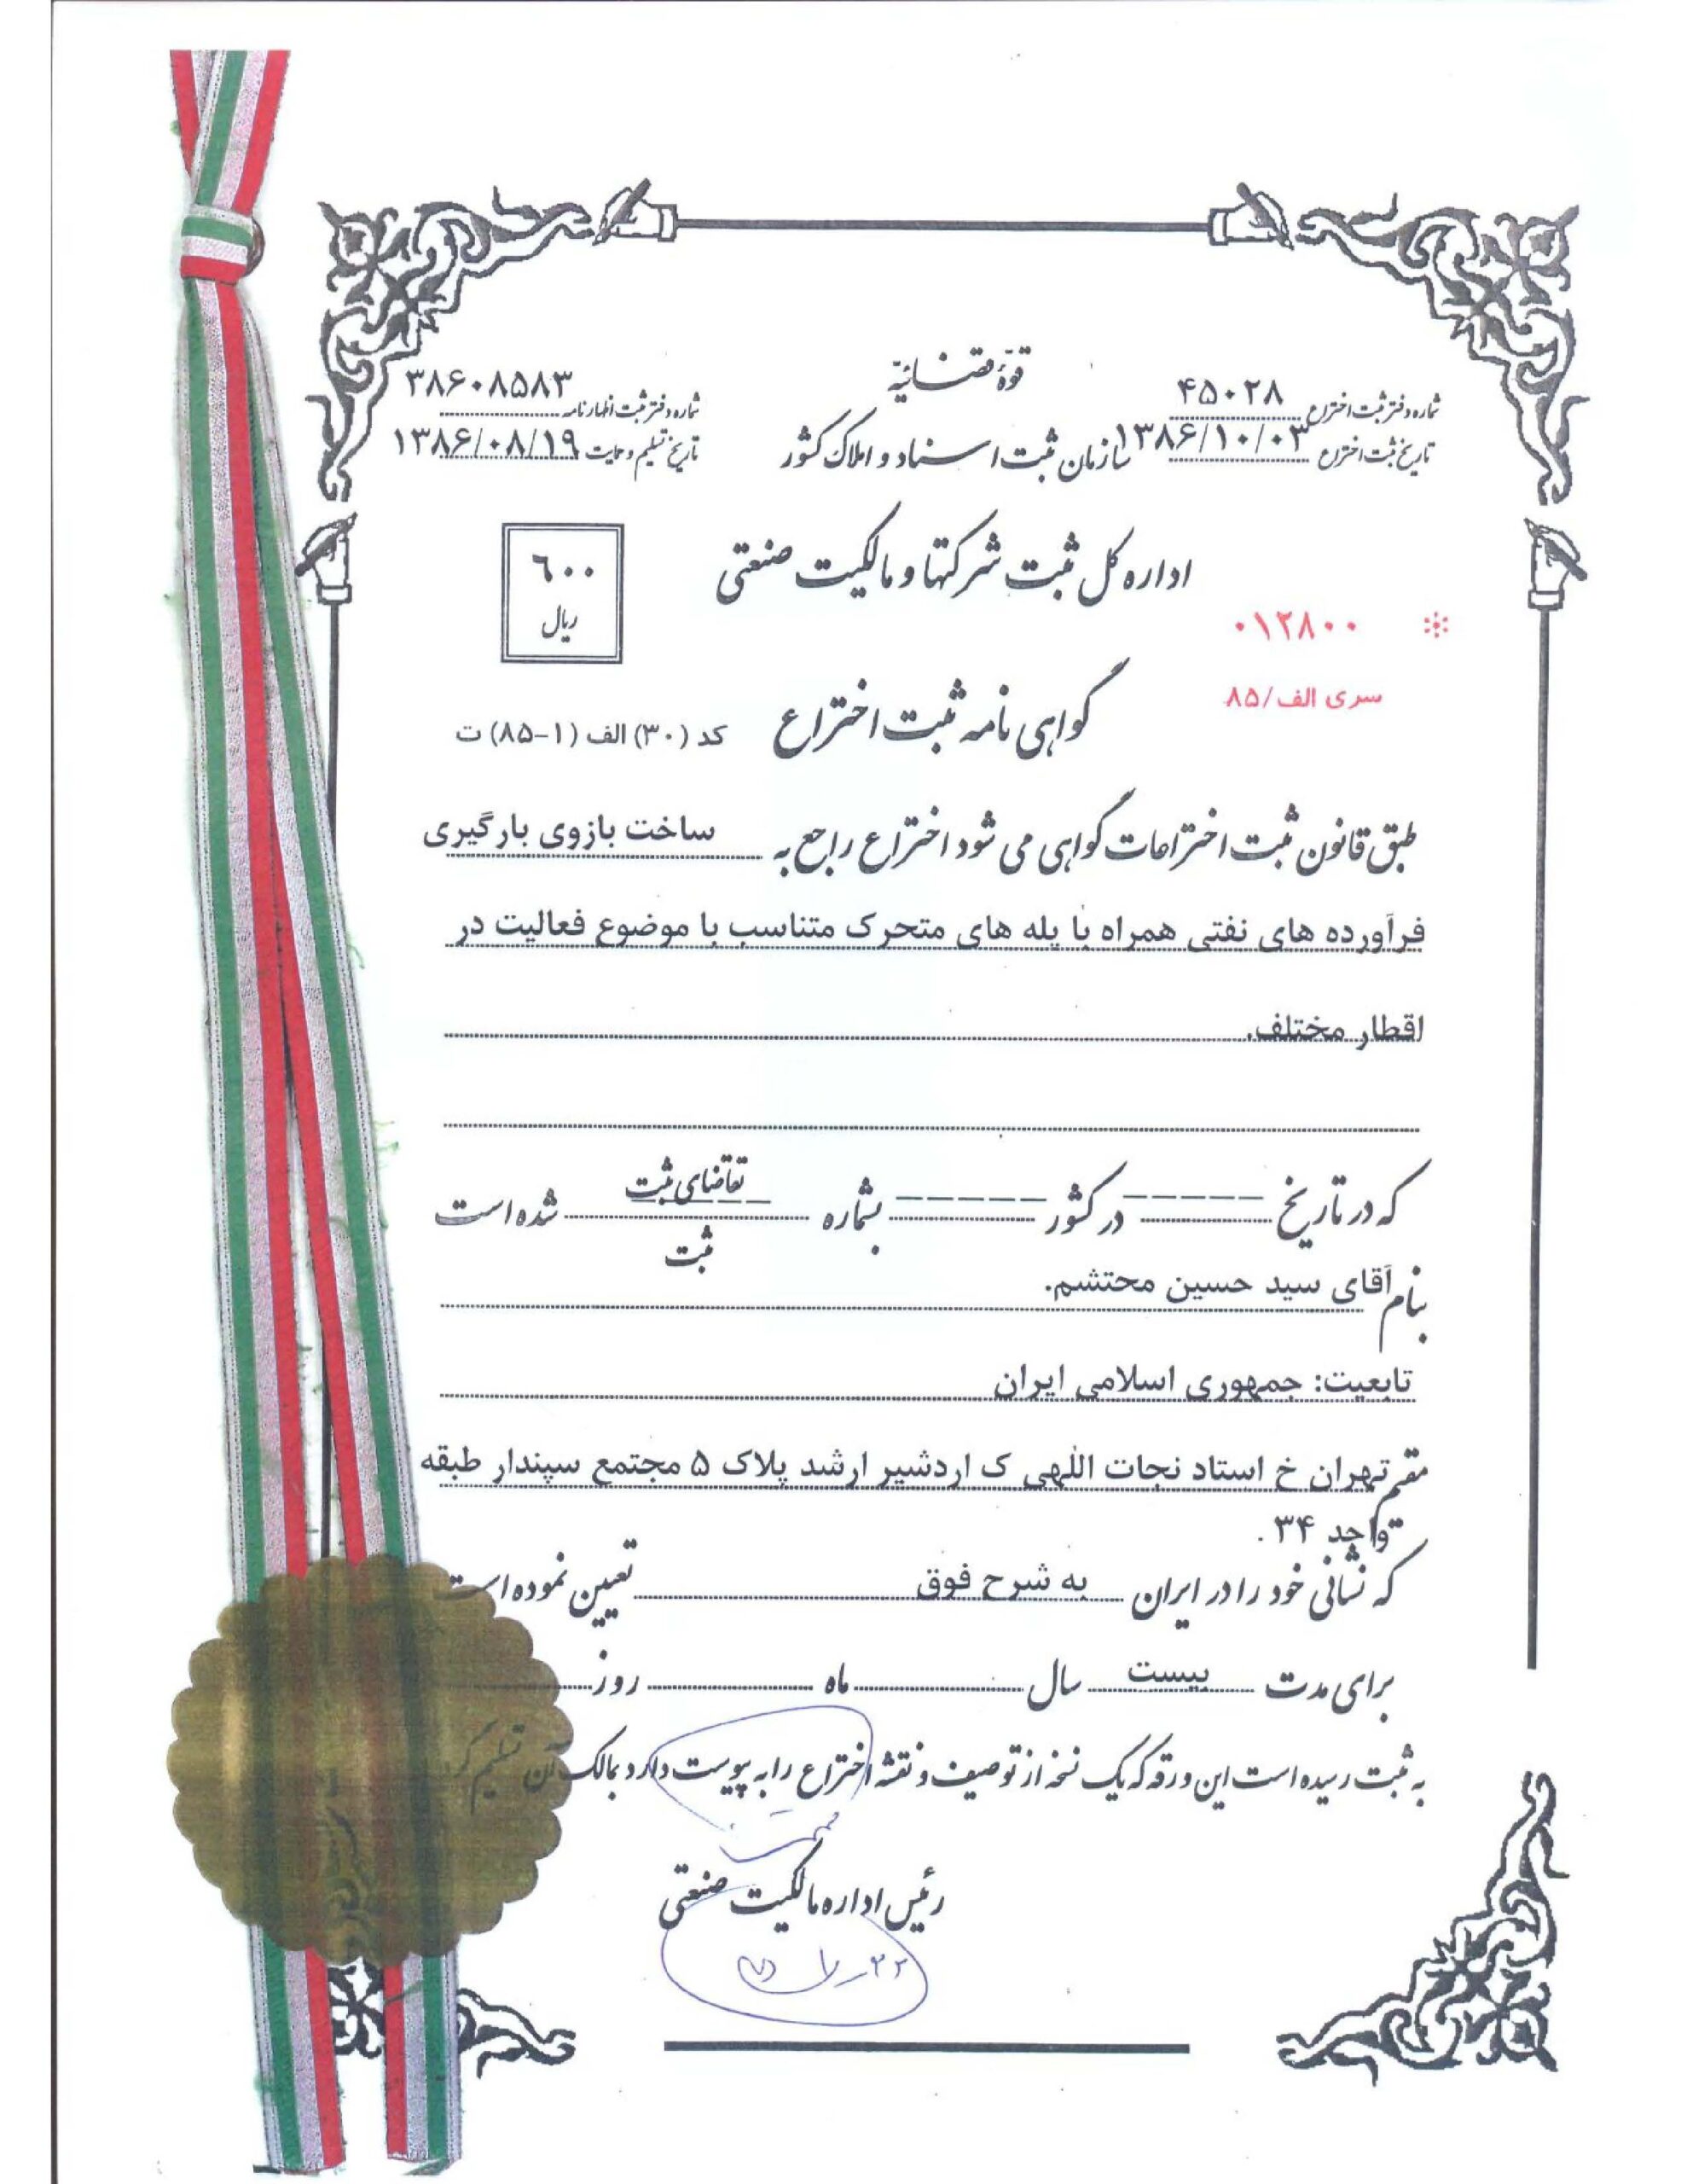 قوۀ قضائیّه
سازمان ثبت اسناد و املاک کشور
شماره دفتر ثبت اختراع ۴۵۰۲۸
تاریخ ثبت اختراع ۱۳۸۶/۱۰/۰۳
شماره دفتر ثبت اظهارنامه ۳۸۶۰۸۵۸۳
تاریخ تسلیم و حمایت ۱۳۸۶/۰۸/۱۹
اداره کل ثبت شرکتها و مالکیت صنعتی
۶۰۰
ریال
۰۱۲۸۰۰
سری الف/۸۵
گواهی نامه ثبت اختراع
کد (۳۰) الف (۱-۸۵) ت
طبق قانون ثبت اختراعات گواهی می شود اختراع راجع به ساخت بازوی بارگیری
فرآورده های نفتی همراه با پله های متحرک متناسب با موضوع فعالیت در
اقطار مختلف.
که در تاریخ در کشور بشماره تقاضای ثبت شده است
ثبت
بنام آقای سید حسین محتشم.
تابعیت: جمهوری اسلامی ایران
مقیم تهران خ استاد نجات اللهی ک اردشیر ارشد پلاک ۵ مجتمع سپندار طبقه
واحد ۳۴ .
که نشانی خود را در ایران به شرح فوق تعیین نموده است
برای مدت بیست سال ماه روز
به ثبت رسیده است این ورقه که یک نسخه از توصیف و نقشه اختراع را به پیوست دارد بمالک آن تسلیم
رئیس اداره مالکیت صنعتی